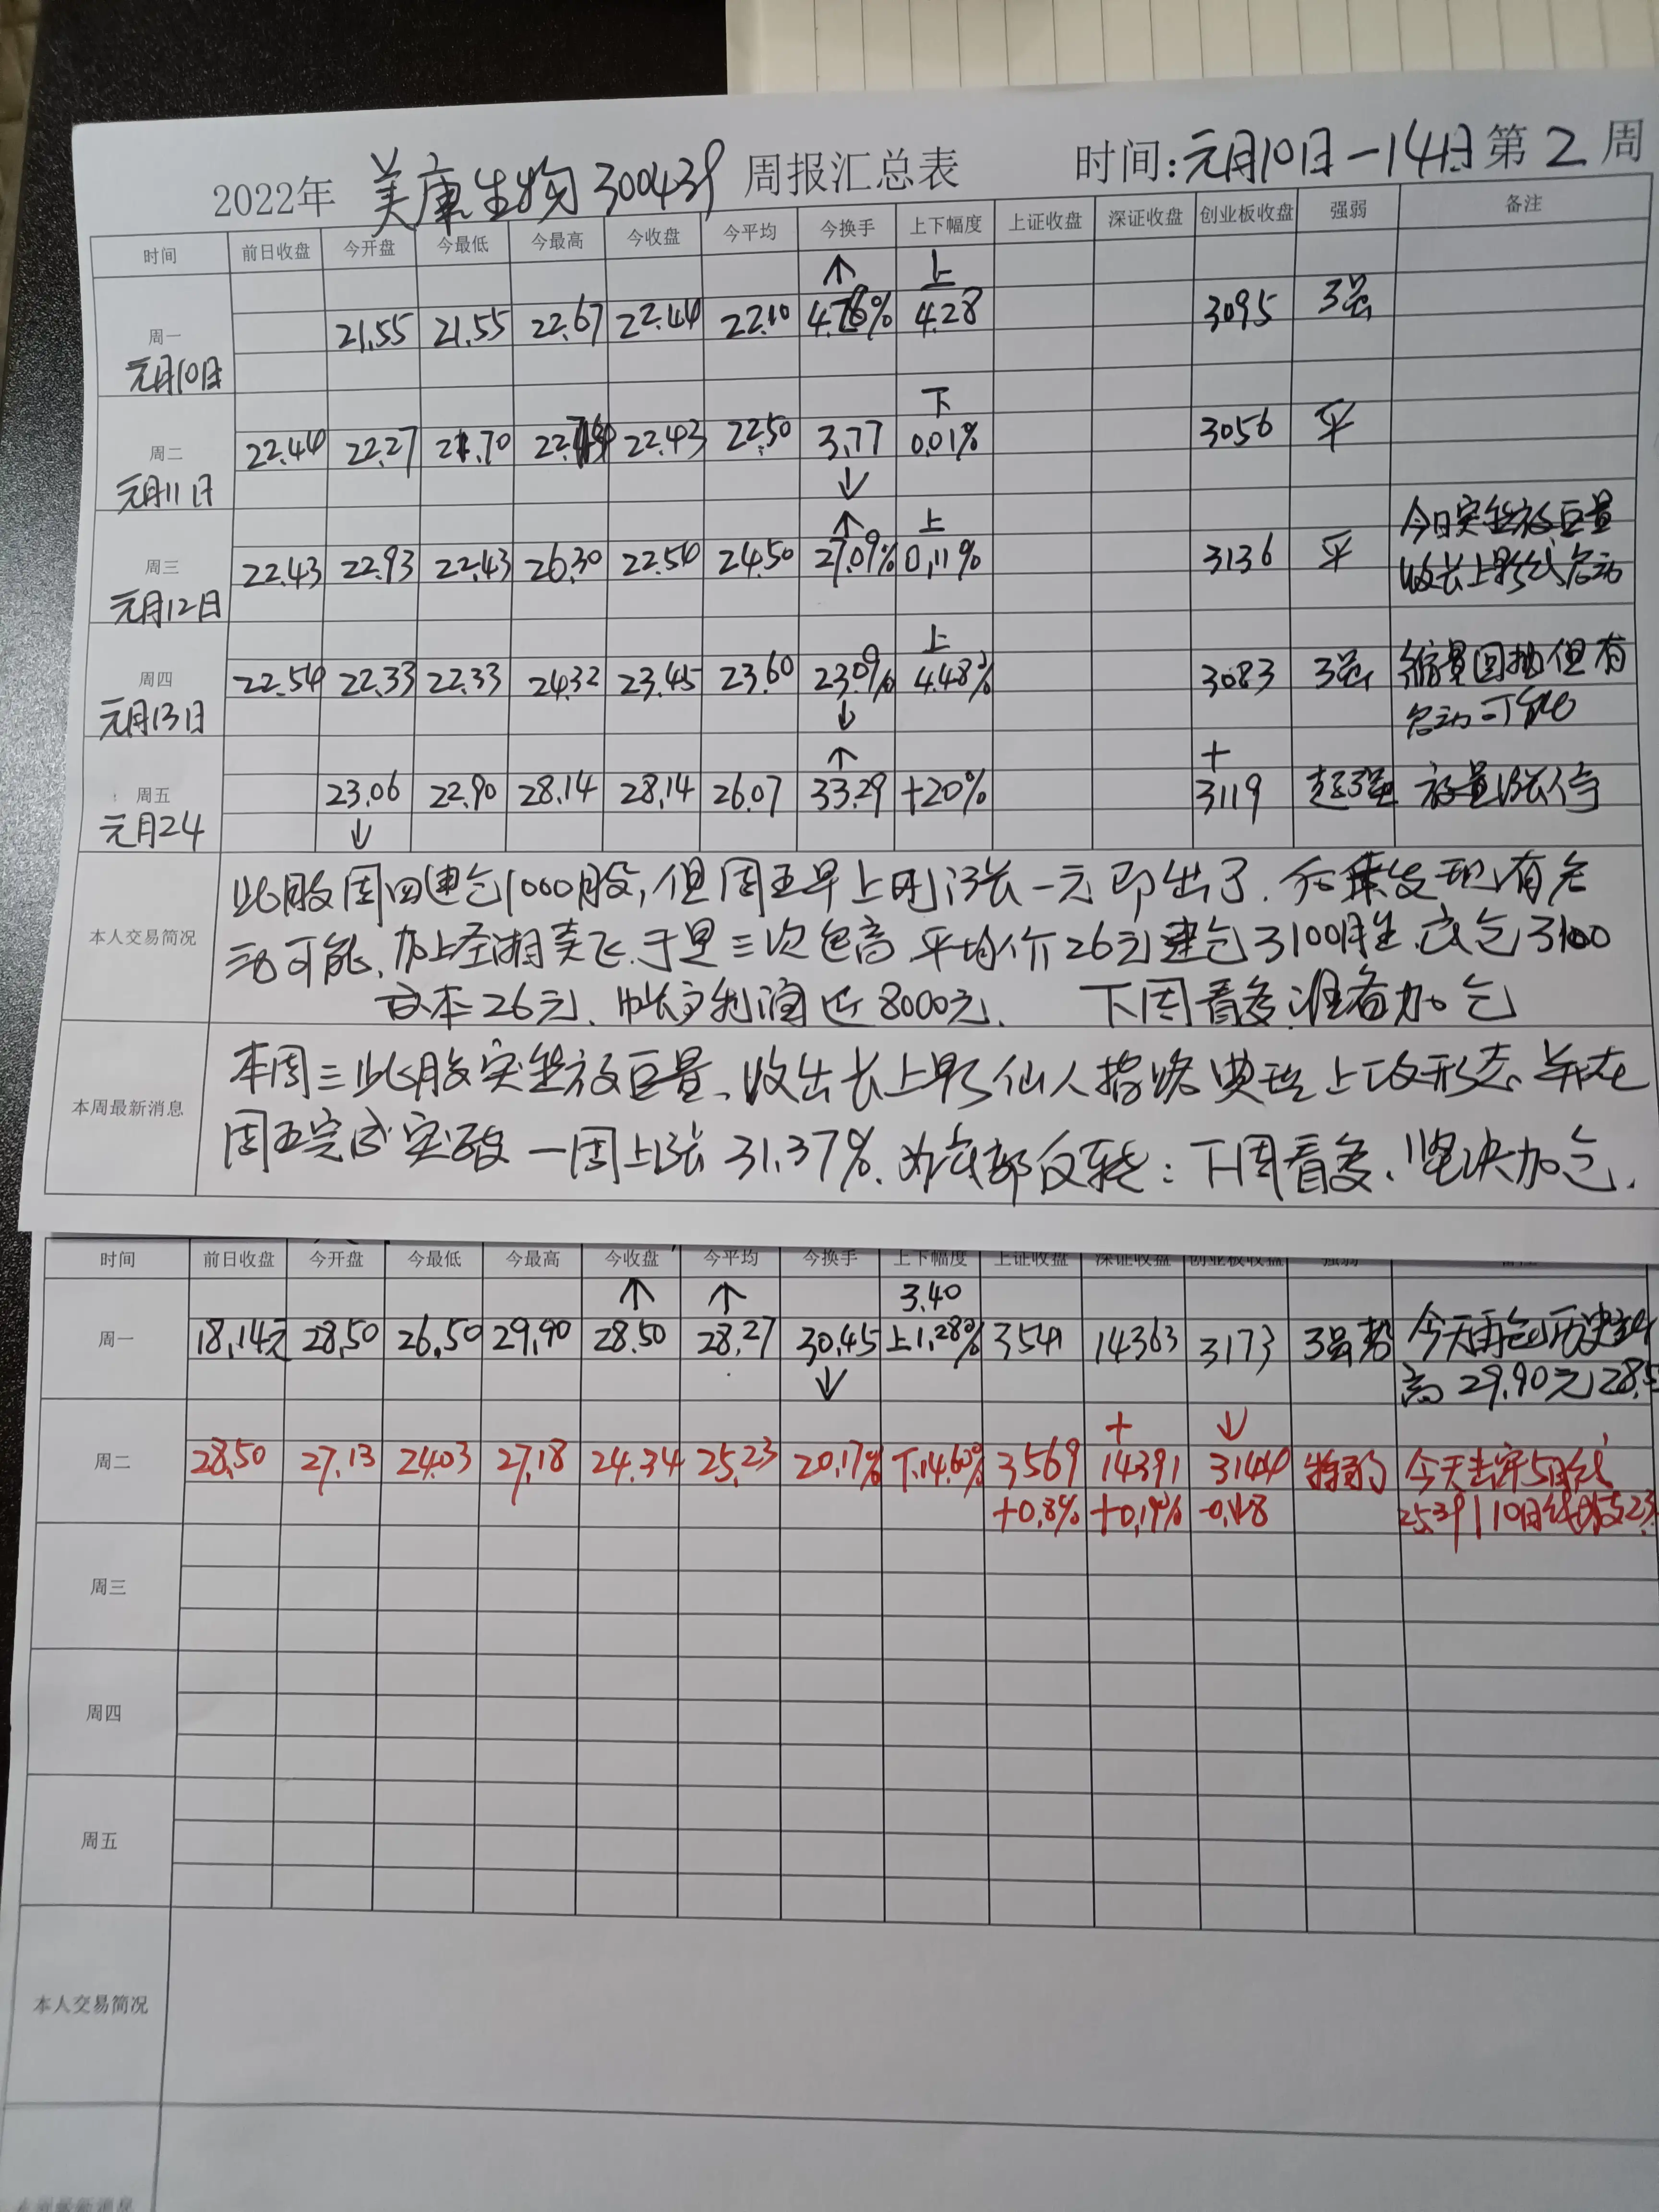 2022年 美康生物300439 周报汇总表 时间:元月10日-14日 第2周
时间 前日收盘 今开盘 今最低 今最高 今收盘 今平均 今换手 上下幅度 上证收盘 深证收盘 创业板收盘 强弱 备注
↑ 上
周一 21.55 21.55 22.67 22.44 22.10 4.78% 4.28 3095 强
元月10日
下
周二 22.44 22.27 21.70 22.43 22.50 3.77 0.01% 3056 平
元月11日 ↓
↑ 上 今日突然放巨量
周三 22.43 22.93 22.43 26.30 22.54 24.50 27.09% 0.11% 3136 平 收长上影线启动
元月12日
上
周四 22.54 22.33 22.33 24.32 23.45 23.60 23.09% 4.48% 3083 强 缩量回抽但有
元月13日 ↓ 启动可能
↑ +
周五 23.06 22.90 28.14 28.14 26.07 33.29 +20% 3119 超强 放量涨停
元月24 ↓
此股周四建仓1000股,但周五早上刚涨一元即出了.后来发现有启
本人交易简况
动可能,加上圣湘卖飞.于是三次追高 平均价26元建仓3100股.底仓3100
成本26元、帐户利润近8000元、 下周看多.准备加仓
本周三此股突然放巨量、收出长上影仙人指路典型上攻形态.并在
本周最新消息
周五完成突破 一周上涨31.37%.为底部反转:下周看多.坚决加仓.
时间 前日收盘 今开盘 今最低 今最高 今收盘 今平均 今换手 上下幅度 上证收盘 深证收盘 创业板收盘 强弱 备注
↑ ↑ 3.40
周一 18.14元 28.50 26.50 29.90 28.50 28.27 30.45 上1.28% 3541 14363 3173 强势 今天再创历史新
↓ 高29.90元28.5
+ ↓
周二 28.50 27.13 24.03 27.18 24.34 25.23 20.17% 下14.60% 3569 14391 3144 特弱 今天击穿5日线
+0.8% +0.19% 25.39 10日线
周三
周四
周五
本人交易简况
本周最新消息